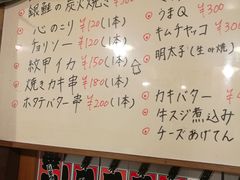 銀鮭の炭火焼き ¥300
心のこり ¥120(1本)
チョリソー ¥120(1本)
紋甲イカ ¥150(1本)
焼きカキ串 ¥180(1本)
ホタテバター串 ¥200(1本)
うまQ ¥300
キムチヤッコ
明太子(生or焼)
カキバター ¥
牛スジ煮込み
チーズあげてん